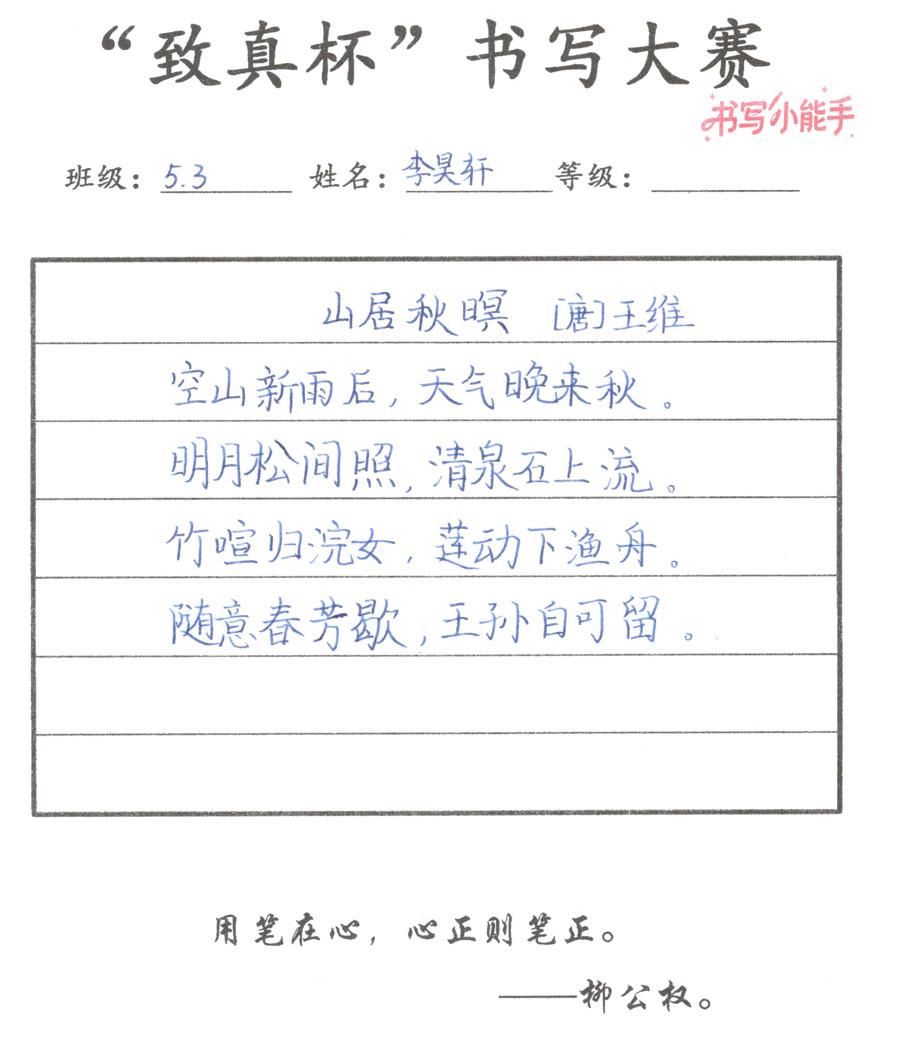 “致真杯”书写大赛
书写小能手
班级：5.3 姓名：李昊轩 等级：
山居秋暝 [唐]王维
空山新雨后，天气晚来秋。
明月松间照，清泉石上流。
竹喧归浣女，莲动下渔舟。
随意春芳歇，王孙自可留。
用笔在心，心正则笔正。
——柳公权。